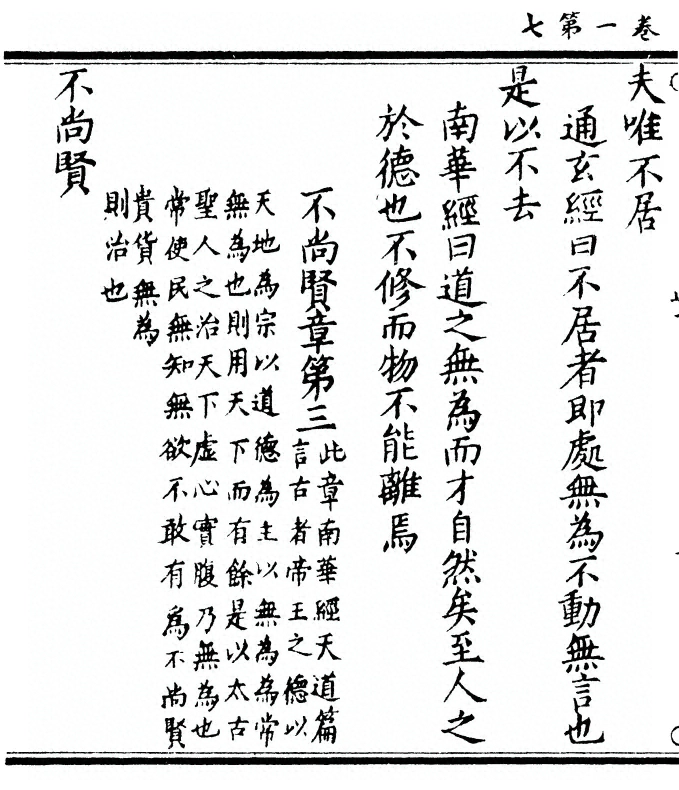 七第一卷
夫唯不居
通玄經曰不居者即處無為不動無言也
是以不去
南華經曰道之無為而才自然矣至人之
於德也不修而物不能離焉
不尚賢章第三
此章南華經天道篇
言古者帝王之德以
天地為宗以道德為主以無為為常
無為也則用天下而有餘是以太古
聖人之治天下虛心實腹乃無為也
常使民無知無欲不敢有為不尚賢
貴貨無為
則治也
不尚賢